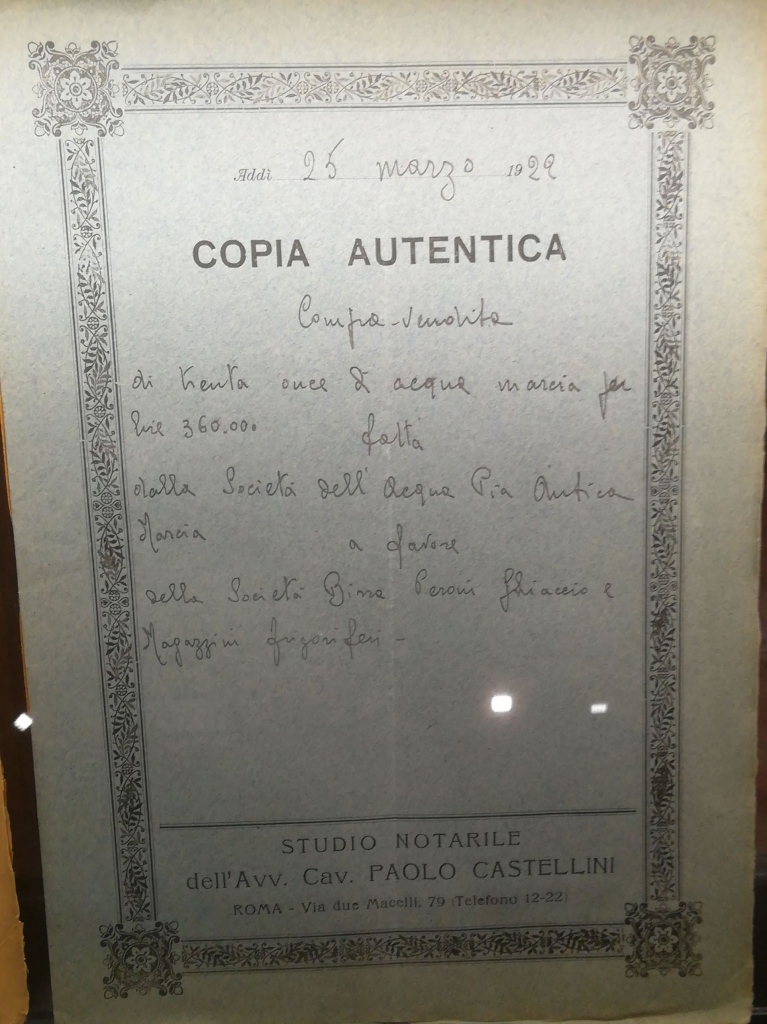 Addì 25 marzo 1922
COPIA AUTENTICA
Compra-vendita
di trenta once di acqua marcia per
lire 360.000 fatta
dalla Società dell'Acqua Pia Antica
Marcia a favore
della Società Birra Peroni Ghiaccio e
Magazzini frigoriferi -
STUDIO NOTARILE
dell'Avv. Cav. PAOLO CASTELLINI
ROMA - Via due Macelli, 79 (Telefono 12-22)